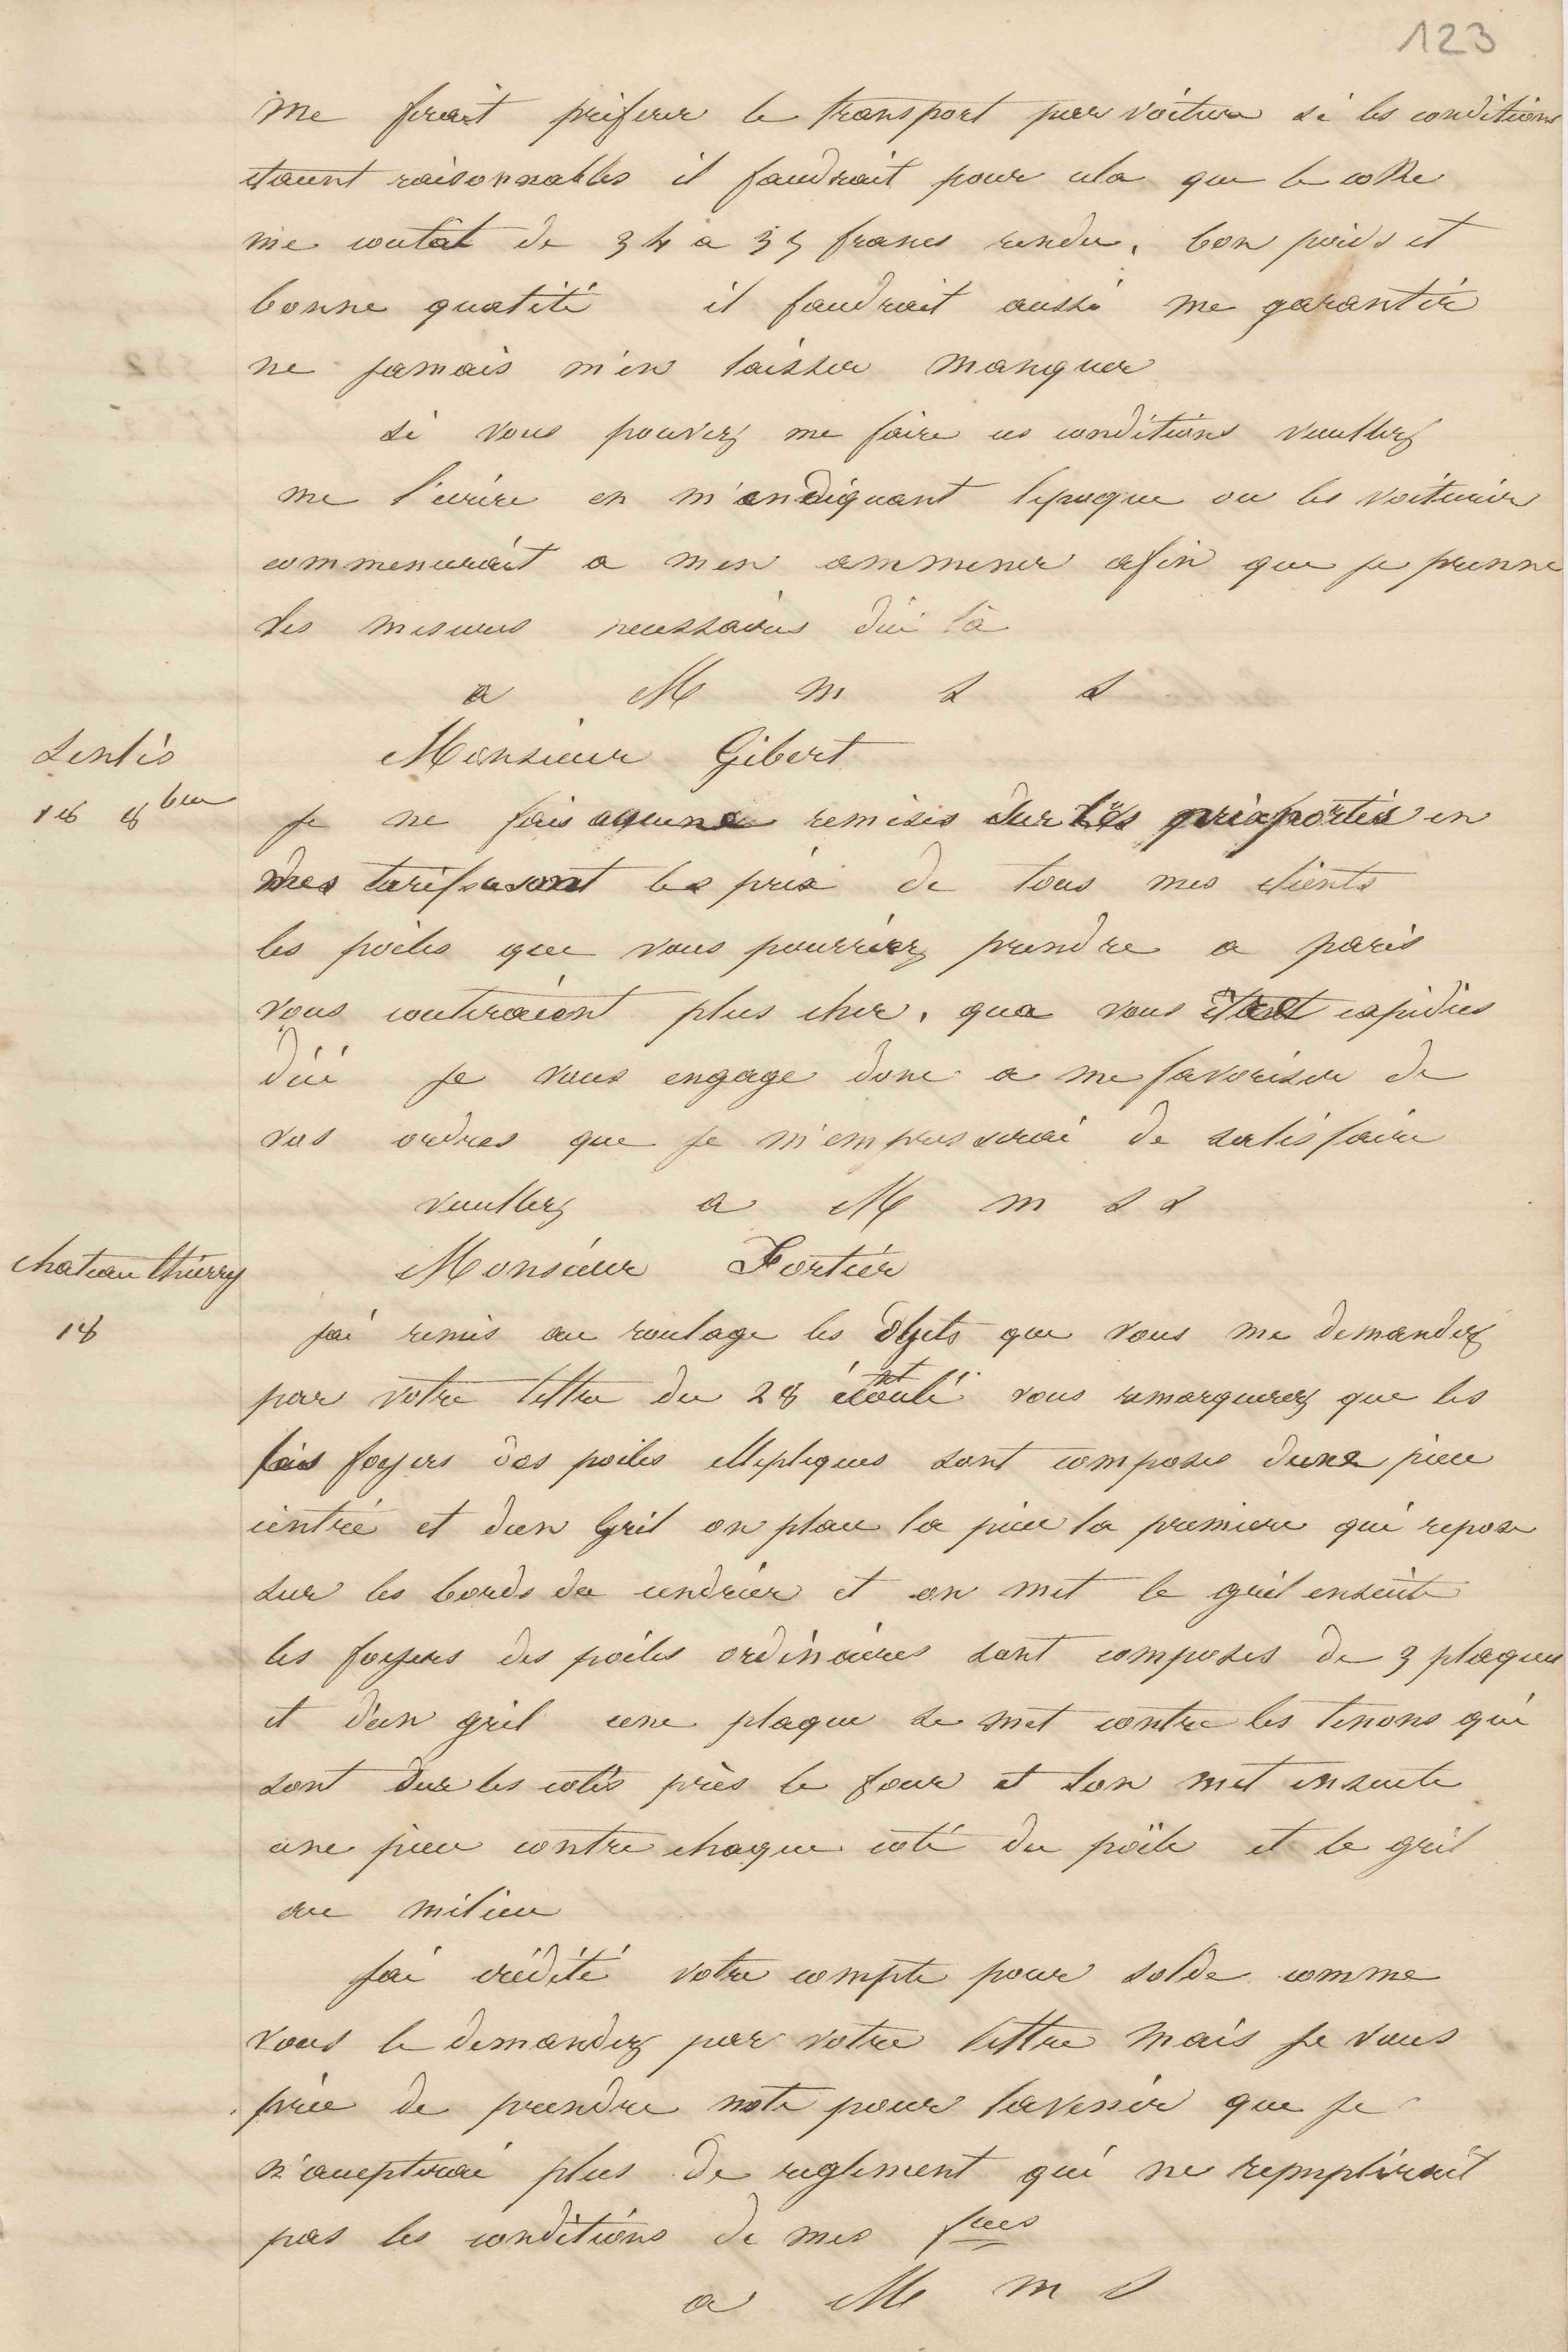 123
me ferait preferer le transport par voiture si les conditions
etaient raisonnables il faudrait pour cela que le coke
me coutat de 34 a 35 francs rendu, bon poids et
bonne qualité il faudrait aussi me garantir
ne jamais m'en laisser manquer
si vous pouvez me faire ces conditions veuillez
me l'ecrire en m'indiquant lepoque ou les voiturier
commencerait a men ammener afin que je prenne
les mesures necessaires dici là
a M m s s
Senlis
Monsieur Gibert
18 8bre
je ne fais aucune remises sur les prix portés en
mes tarifs ce sont les prix de tous mes clients
les poeles que vous pourriez prendre a paris
vous couteraient plus cher, qua vous etant expediés
dici je vous engage donc a me favoriser de
vos ordres que je m'empresserai de satisfaire
veuillez a M m s s
chateau thierry
Monsieur Fortier
18
jai remis au roulage les objets que vous me demandez
par votre lettre du 28 écoulé vous remarquerez que les
foyers des poeles elleptiques sont composés dune piece
cintrée et dun gril on place la piece la premiere qui repose
sur les bords du cendrier et on met le gril ensuite
les foyers des poêles ordinaires sont composés de 3 plaques
et d'un gril une plaque se met contre les tenons qui
sont sur les cotés près le four et lon met ensuite
une piece contre chaque coté du poële et le gril
au milieu
jai crédité votre compte pour solde comme
vous le demandez par votre lettre mais je vous
prie de prendre note pour lavenir que je
n'accepterai plus de reglement qui ne remplirait
pas les conditions de mes fces
a M m s